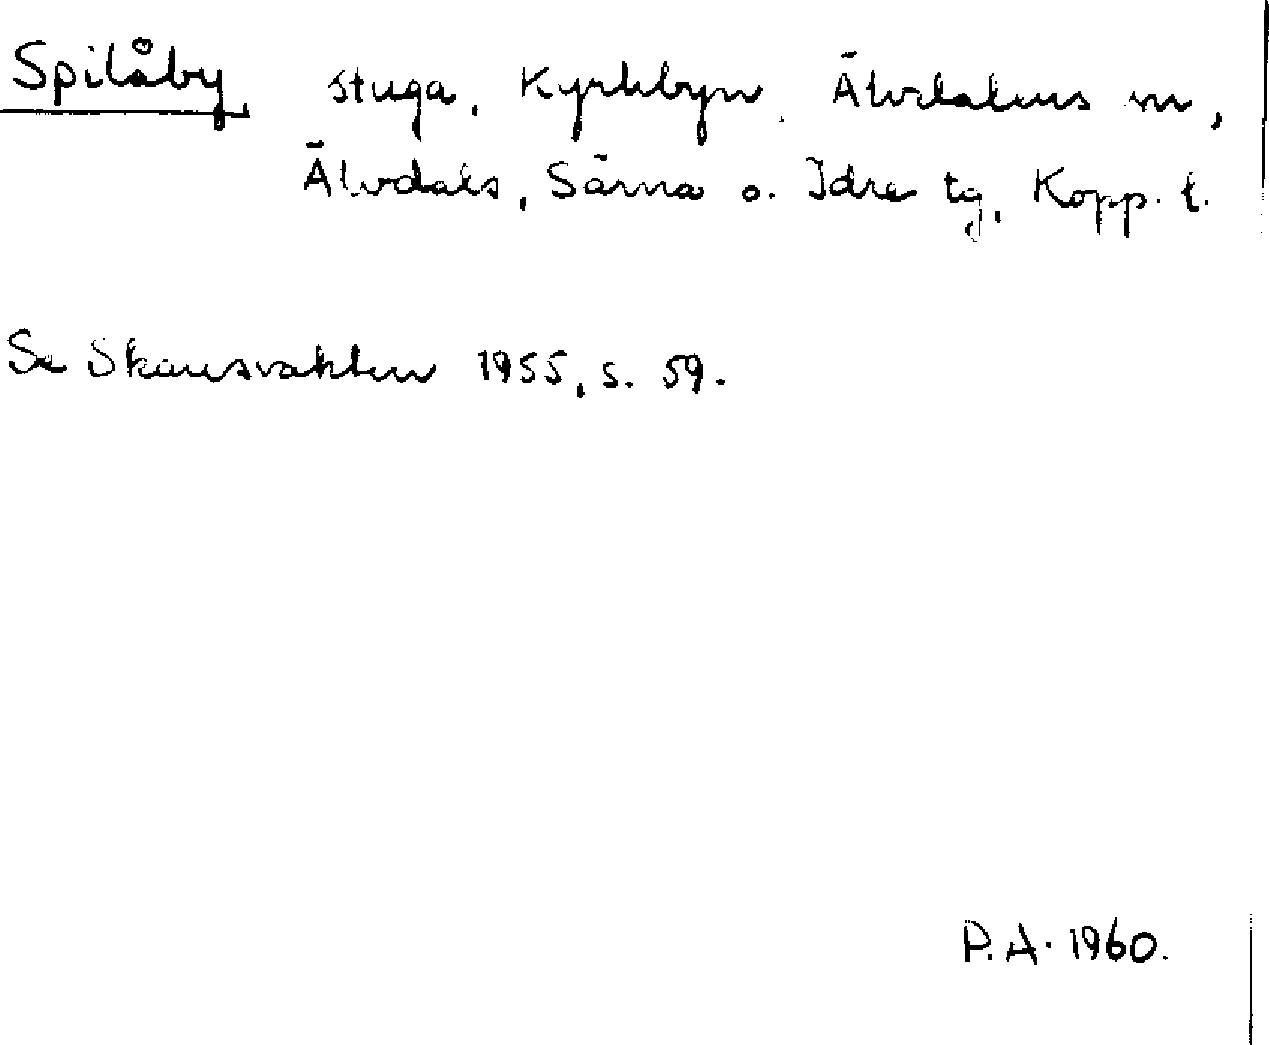 Spilåby stuga, Kyrkbyn, Älvdalens sn,
Älvdals, Särna o. Idre tg, Kopp. l.
Se Skansvakten 1955, s. 59.
P.A. 1960.